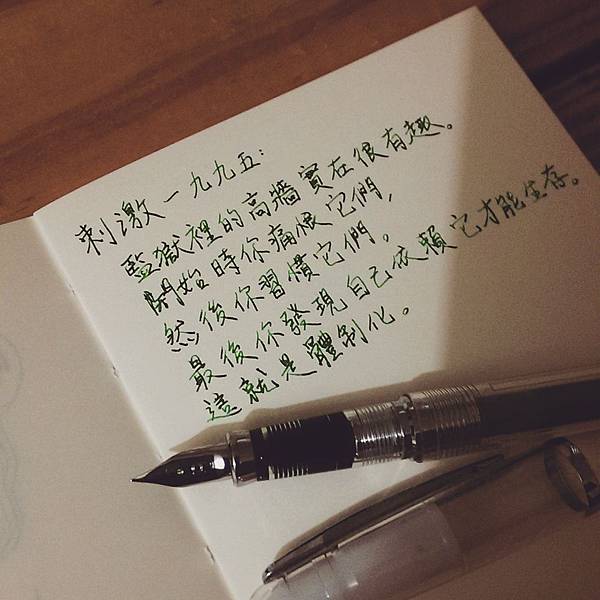 刺激一九九五:
監獄裡的高牆實在很有趣。
開始時你痛恨它們,
然後你習慣它們,
最後你發現自己依賴它才能生存。
這就是體制化。